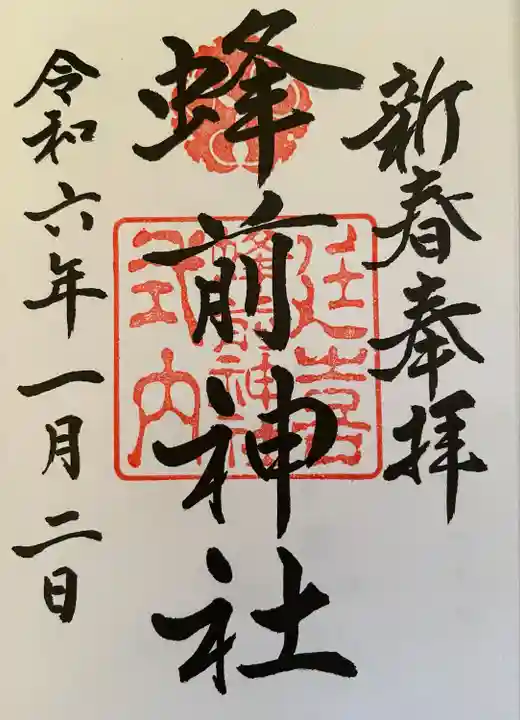 新春奉拝
蜂前神社
延喜
蜂前神社
式内
令和六年一月二日